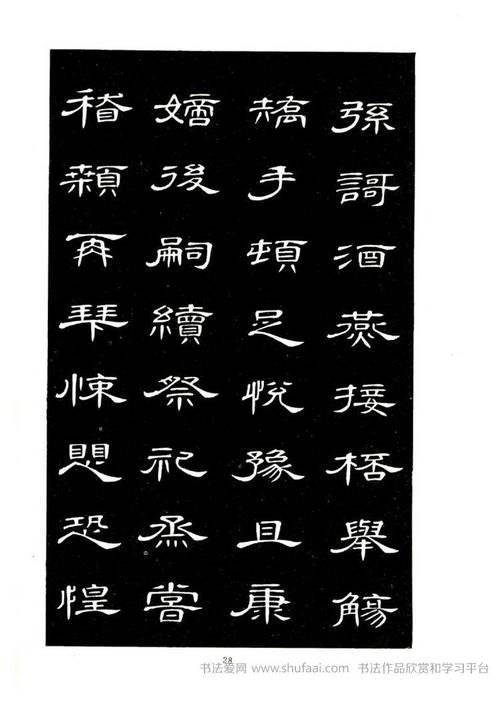 弦謌酒燕接桮舉觴
矯手頓足悅豫且康
嫡後嗣續祭祀烝嘗
稽顙再拜悚愳恐惶
28
书法爱网 www.shufaai.com 书法作品欣赏和学习平台